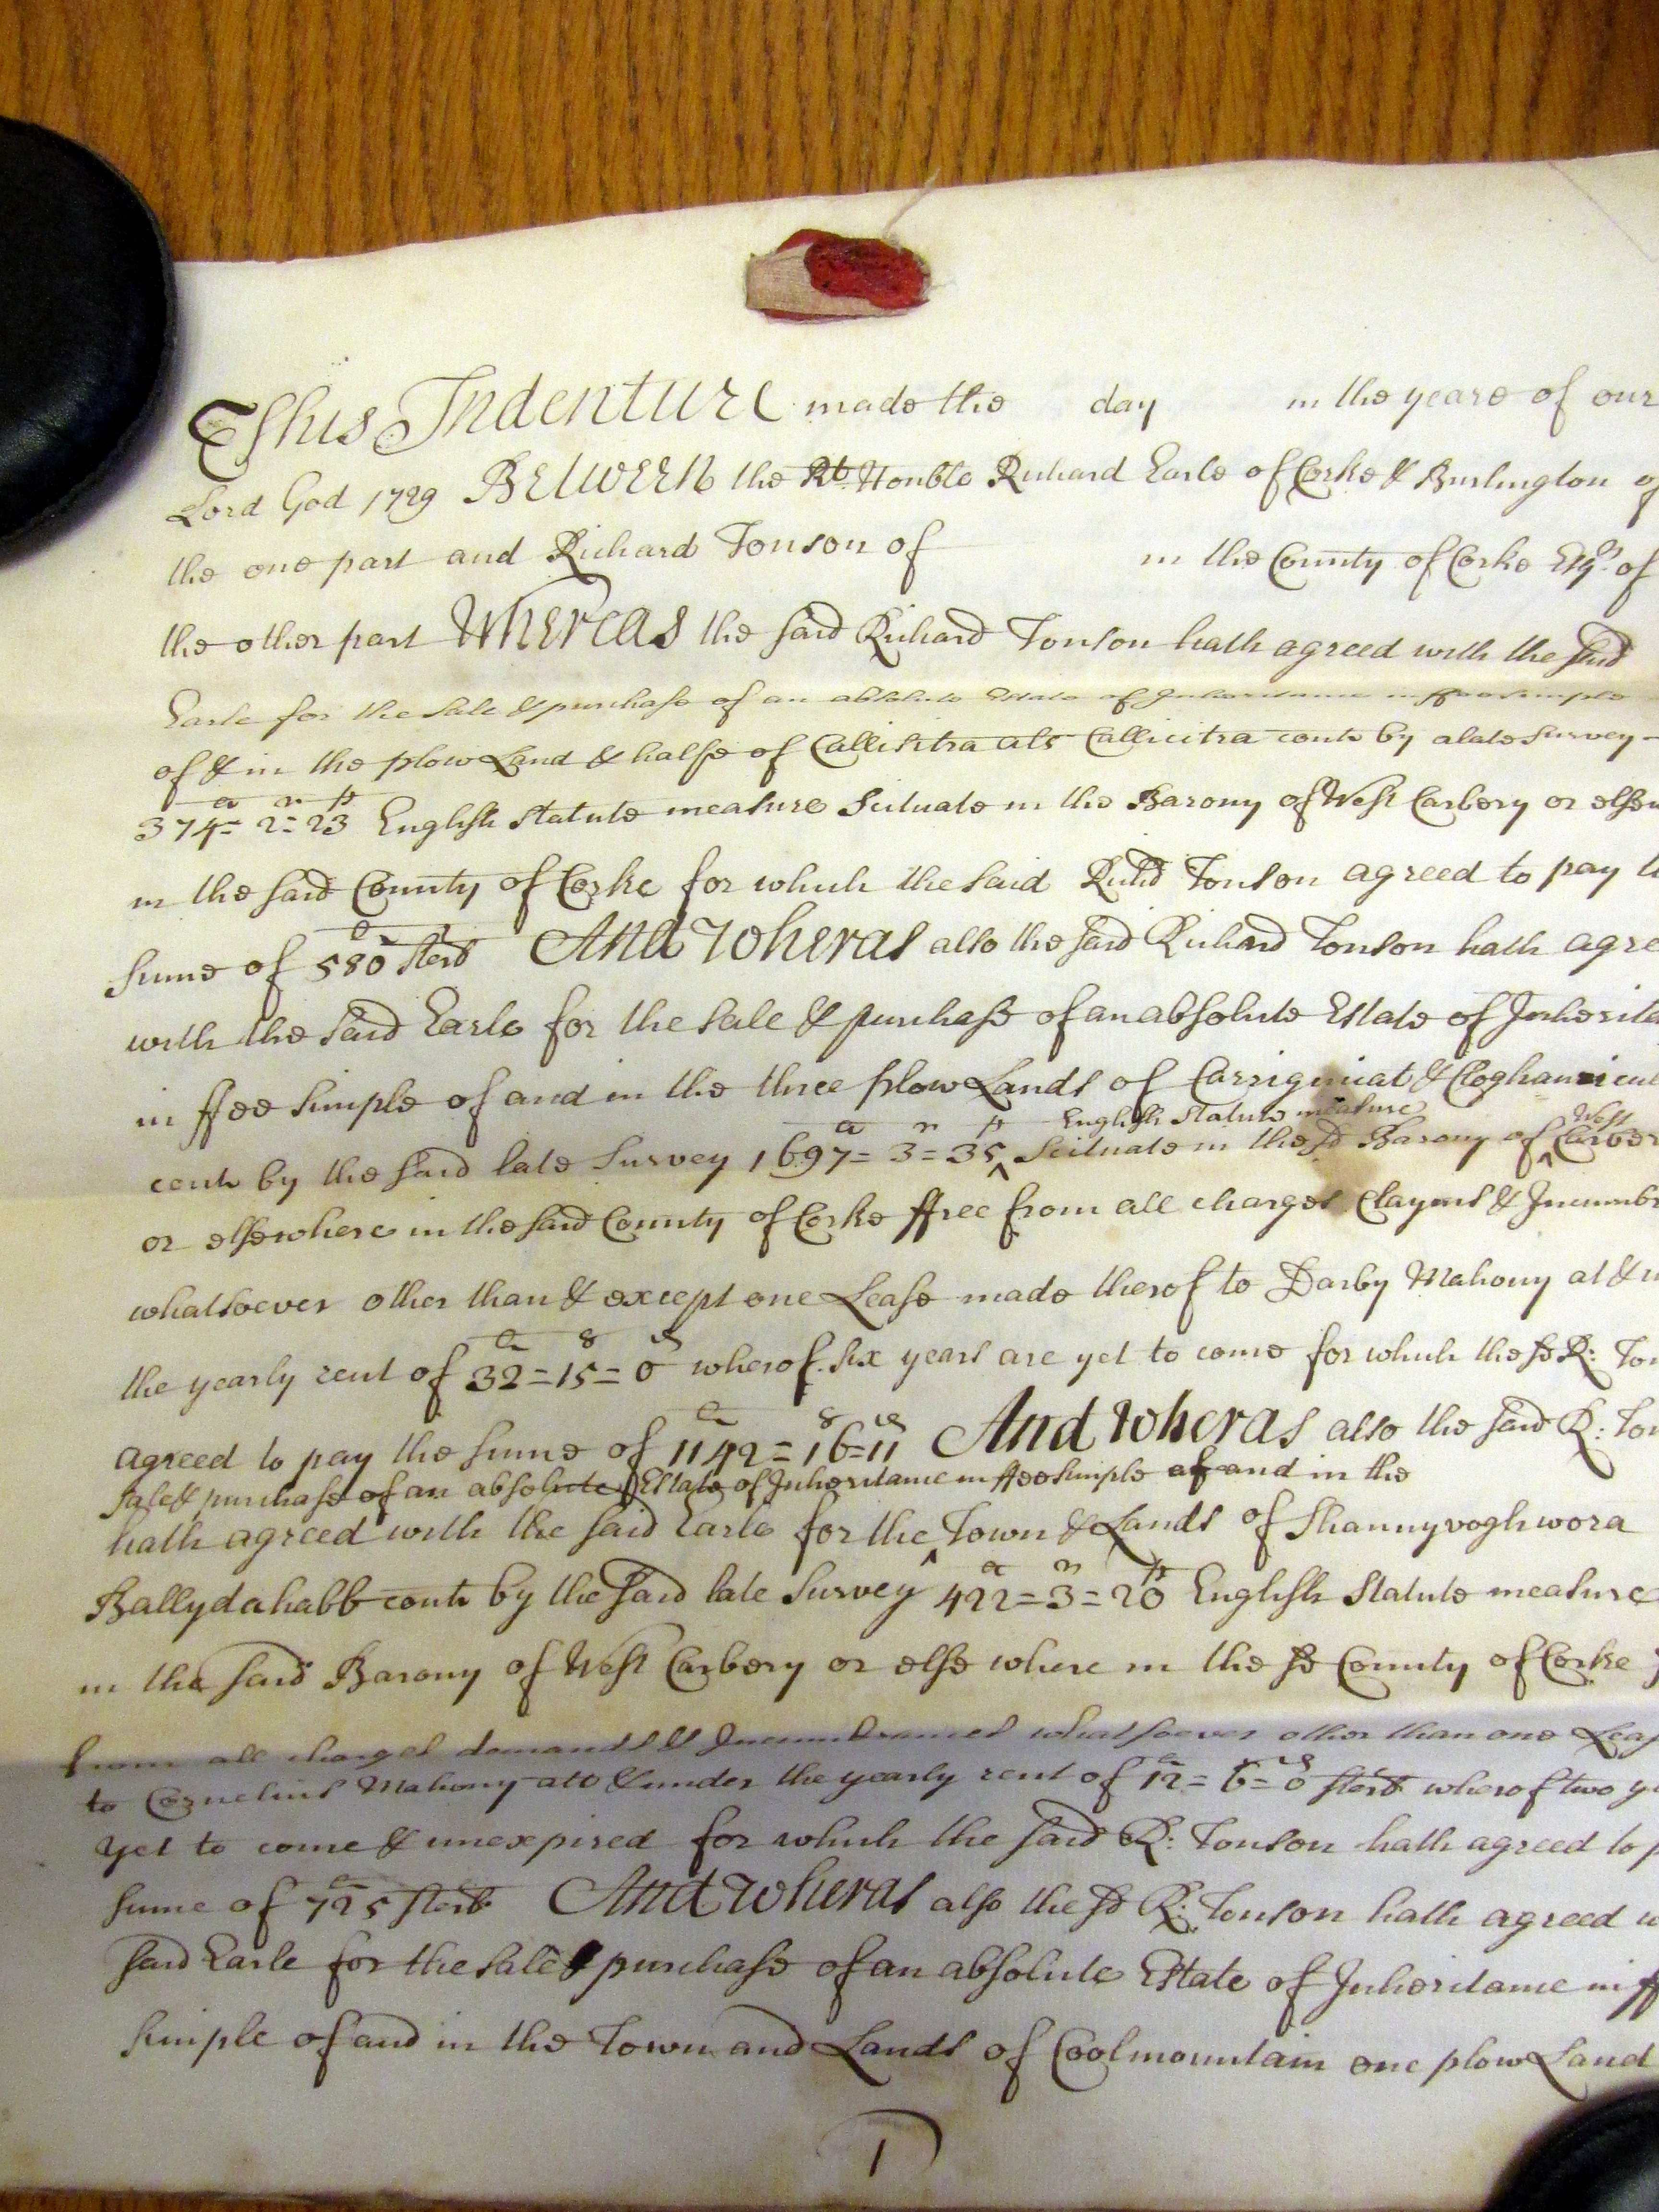 This Indenture made the day in the yeare of our
Lord God 1729 Between the Rt. Honble Richard Earle of Corke & Burlington of
the one part and Richard Tonson of in the County of Corke Esqr. of
the other part Whereas the said Richard Tonson hath agreed with the said
Earle for the Sale & purchase of an absolute Estate of Inheritance in ffee simple
of & in the plow Land & halfe of Callisitra als Callicitra cont by a late Survey
a r p
374= 2= 23 English Statute measure Scituate in the Barony of West Carbery or
in the said County of Corke for which the said Richd Tonson agreed to pay
sume of 580 sterl And Wheras also the said Richard Tonson hath
with the said Earle for the sale & purchase of an absolute Estate of
in ffee simple of and in the three plow Lands of &
English Statute measure West
a r p
cont by the said late Survey 1697= 3= 35 Scituate in the sd Barony of
or elsewhere in the said County of Corke ffree from all charges Clayms &
whatsoever other than & except one Lease made therof to Darby Mahony at &
the yearly rent of 32=15=0 wherof six years are yet to come for which the sd R:
agreed to pay the sume of 1142=16=11 And Wheras also the said R:
sale & purchase of an absolute Estate of Inheritance in ffee simple of and in the
hath agreed with the said Earle for the Town & Lands of Shannyvoghwora
a r p
Ballydahabb cont by the said late Survey 422=3=20 English Statute measure
in the said Barony of West Carbery or else where in the sd County of Corke
from all charges demands & Incumbrances whatsoever other than one
to Cornelius Mahony att & under the yearly rent of 12= 6=0 sterl wherof two
yet to come & unexpired for which the said R: Tonson hath agreed to
sume of 725 sterl And Wheras also the sd R: Tonson hath agreed
said Earle for the sale & purchase of an absolute Estate of Inheritance in
simple of and in the Town and Lands of Coolmountain one plow Land
1